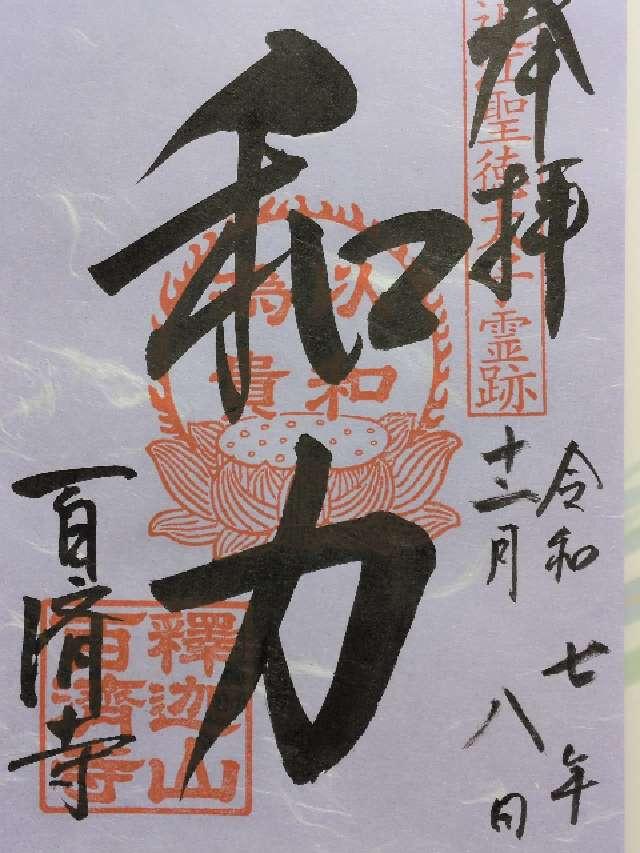 奉拝
近江聖徳太子霊跡
令和七年
十二月八日
和力
以和
為貴
百済寺
釋迦山
百濟寺